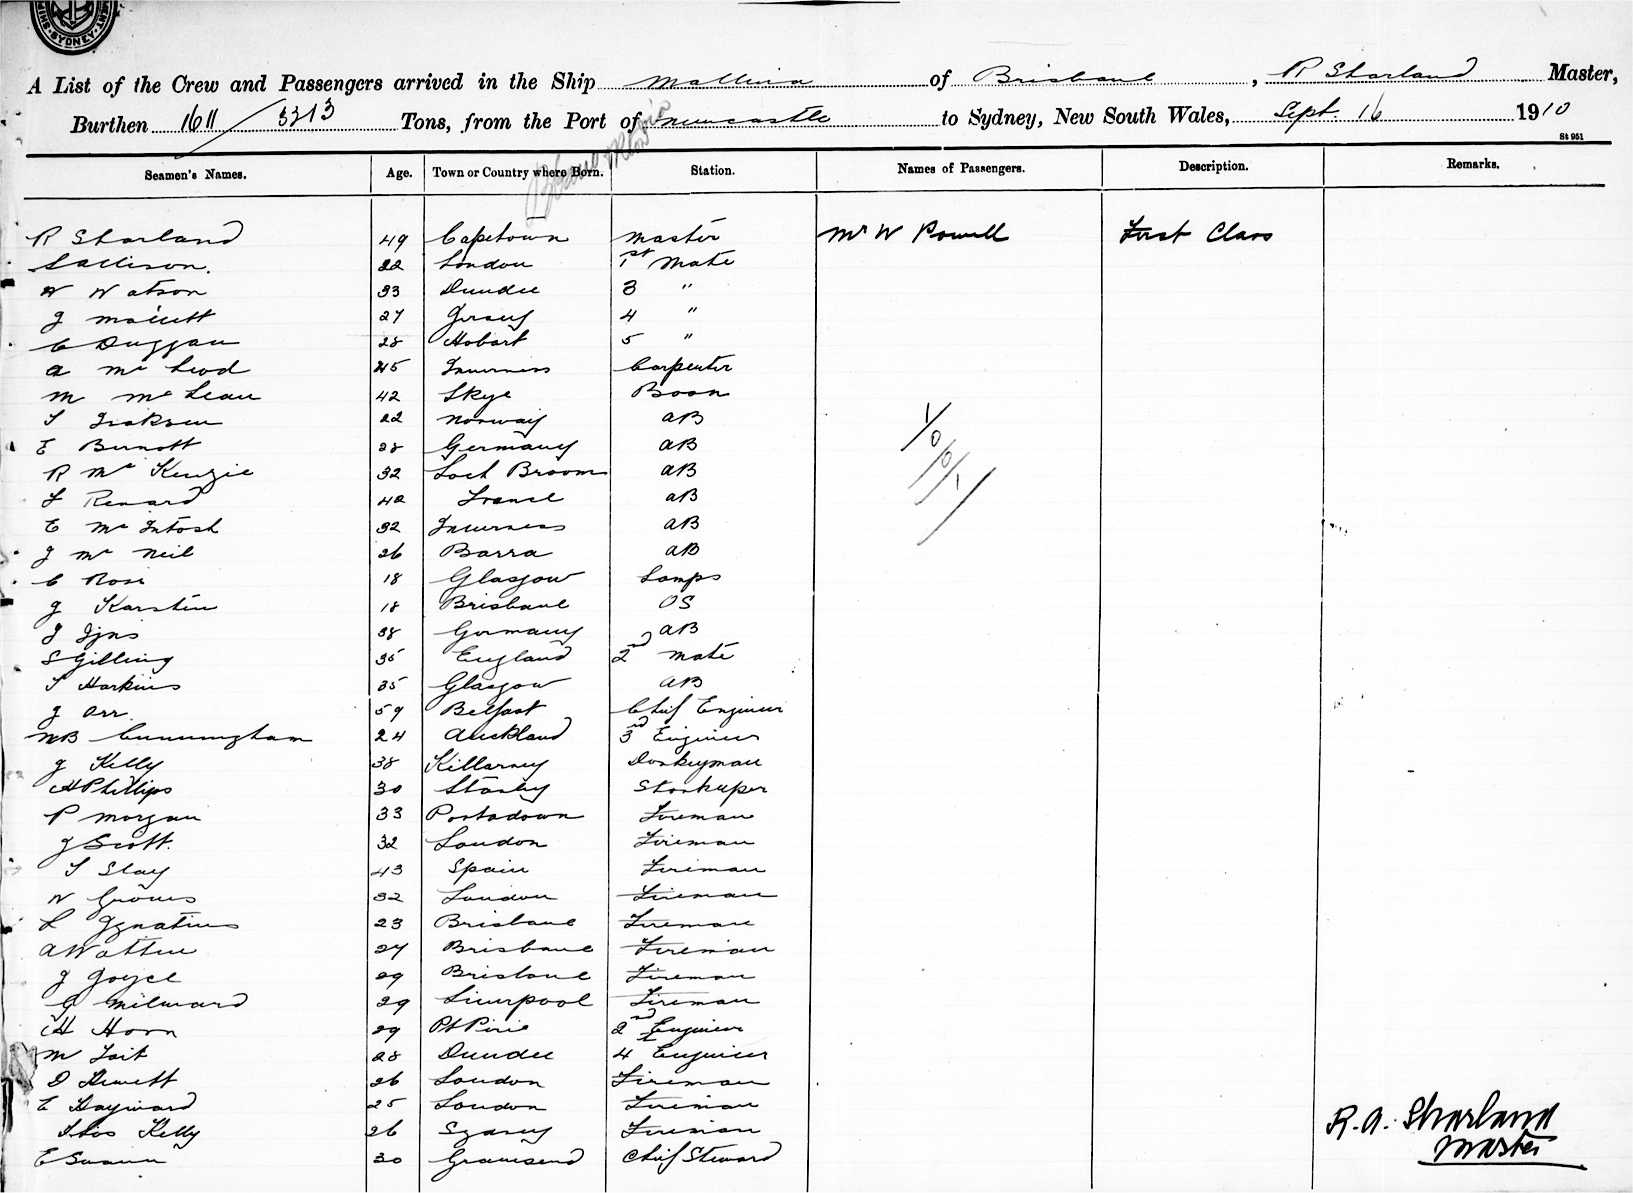 SYDNEY
A List of the Crew and Passengers arrived in the Ship Mallina of Brisbane, R Sharland Master,
Burthen 1611/3213 Tons, from the Port of Newcastle to Sydney, New South Wales, Sept. 16 1910
St 951
Seamen's Names. Age. Town or Country where Born. Station. Names of Passengers. Description. Remarks.
R Sharland 49 Capetown Master Mr W Powell First Class
22 London 1st Mate
W Watson 33 Dundee 3 "
J 27 4 "
C Duggan 28 Hobart 5 "
A McLeod 45 Inverness Carpenter
M McLean 42 Skye Bosn
22 Norway AB
E 28 Germany AB
R McKenzie 32 Loch Broom AB
F Renard 42 France AB
E McIntosh 32 Inverness AB
J McNeil 26 Barra AB
C Rose 18 Glasgow Lamps
J Karsten 18 Brisbane OS
38 Germany AB
S Gilling 35 England 2nd Mate
T Harkins 35 Glasgow AB
J Orr. 59 Belfast Chief Engineer
Cunningham 24 Auckland 3rd Engineer
J Kelly 38 Killarney Donkeyman
H Phillips 30 Stanley Storekeeper
P Morgan 33 Portadown Fireman
J Scott. 32 London Fireman
43 Spain Fireman
W Groves 32 London Fireman
L Ignatius 23 Brisbane Fireman
A Watten 27 Brisbane Fireman
J Joyce 29 Brisbane Fireman
G Milward 29 Liverpool Fireman
H Horn 29 Pt Pirie 2nd Engineer
M Tait 28 Dundee 4 Engineer
D 26 London Fireman
E Hayward 25 London Fireman
Thos Kelly 26 Sydney Fireman
E Swann 30 Gravesend Chief Steward
1/0/0/1/
R. A. Sharland
Master